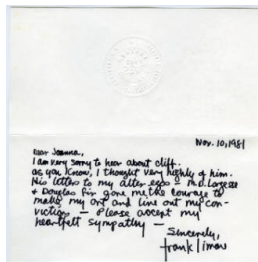 Nov. 10, 1981
Dear Joanna,
I am very sorry to hear about Cliff.
as you know, I thought very highly of him.
His letters to my alter egos – M.D.
& Douglas Fir gave me the courage to
make my art and line out my con-
victions — Please accept my
heartfelt sympathy —
Sincerely,
frank